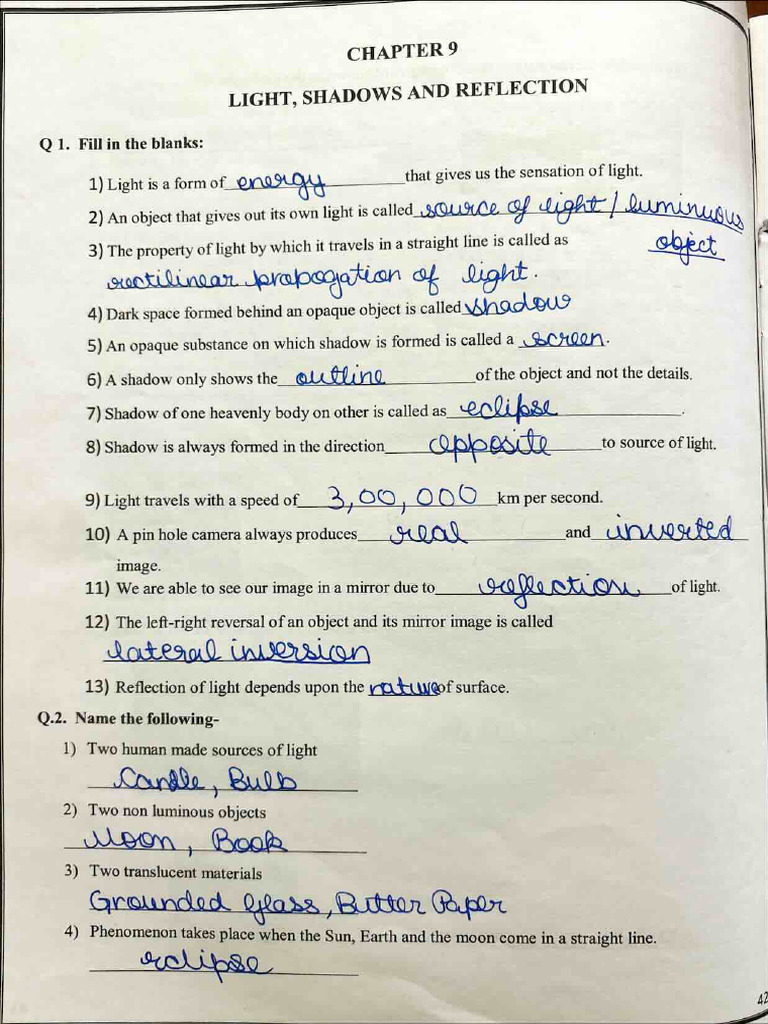 CHAPTER 9
LIGHT, SHADOWS AND REFLECTION
Q 1. Fill in the blanks:
1) Light is a form of energy that gives us the sensation of light.
2) An object that gives out its own light is called source of light / luminous
object
3) The property of light by which it travels in a straight line is called as
rectilinear propogation of light.
4) Dark space formed behind an opaque object is called shadow
5) An opaque substance on which shadow is formed is called a screen.
6) A shadow only shows the outline of the object and not the details.
7) Shadow of one heavenly body on other is called as eclipse.
8) Shadow is always formed in the direction opposite to source of light.
9) Light travels with a speed of 3,00,000 km per second.
10) A pin hole camera always produces real and inverted
image.
11) We are able to see our image in a mirror due to reflection of light.
12) The left-right reversal of an object and its mirror image is called
lateral inversion
13) Reflection of light depends upon the nature of surface.
Q.2. Name the following-
1) Two human made sources of light
Candle, Bulb
2) Two non luminous objects
Moon, Book
3) Two translucent materials
Grounded Glass, Butter Paper
4) Phenomenon takes place when the Sun, Earth and the moon come in a straight line.
eclipse
42